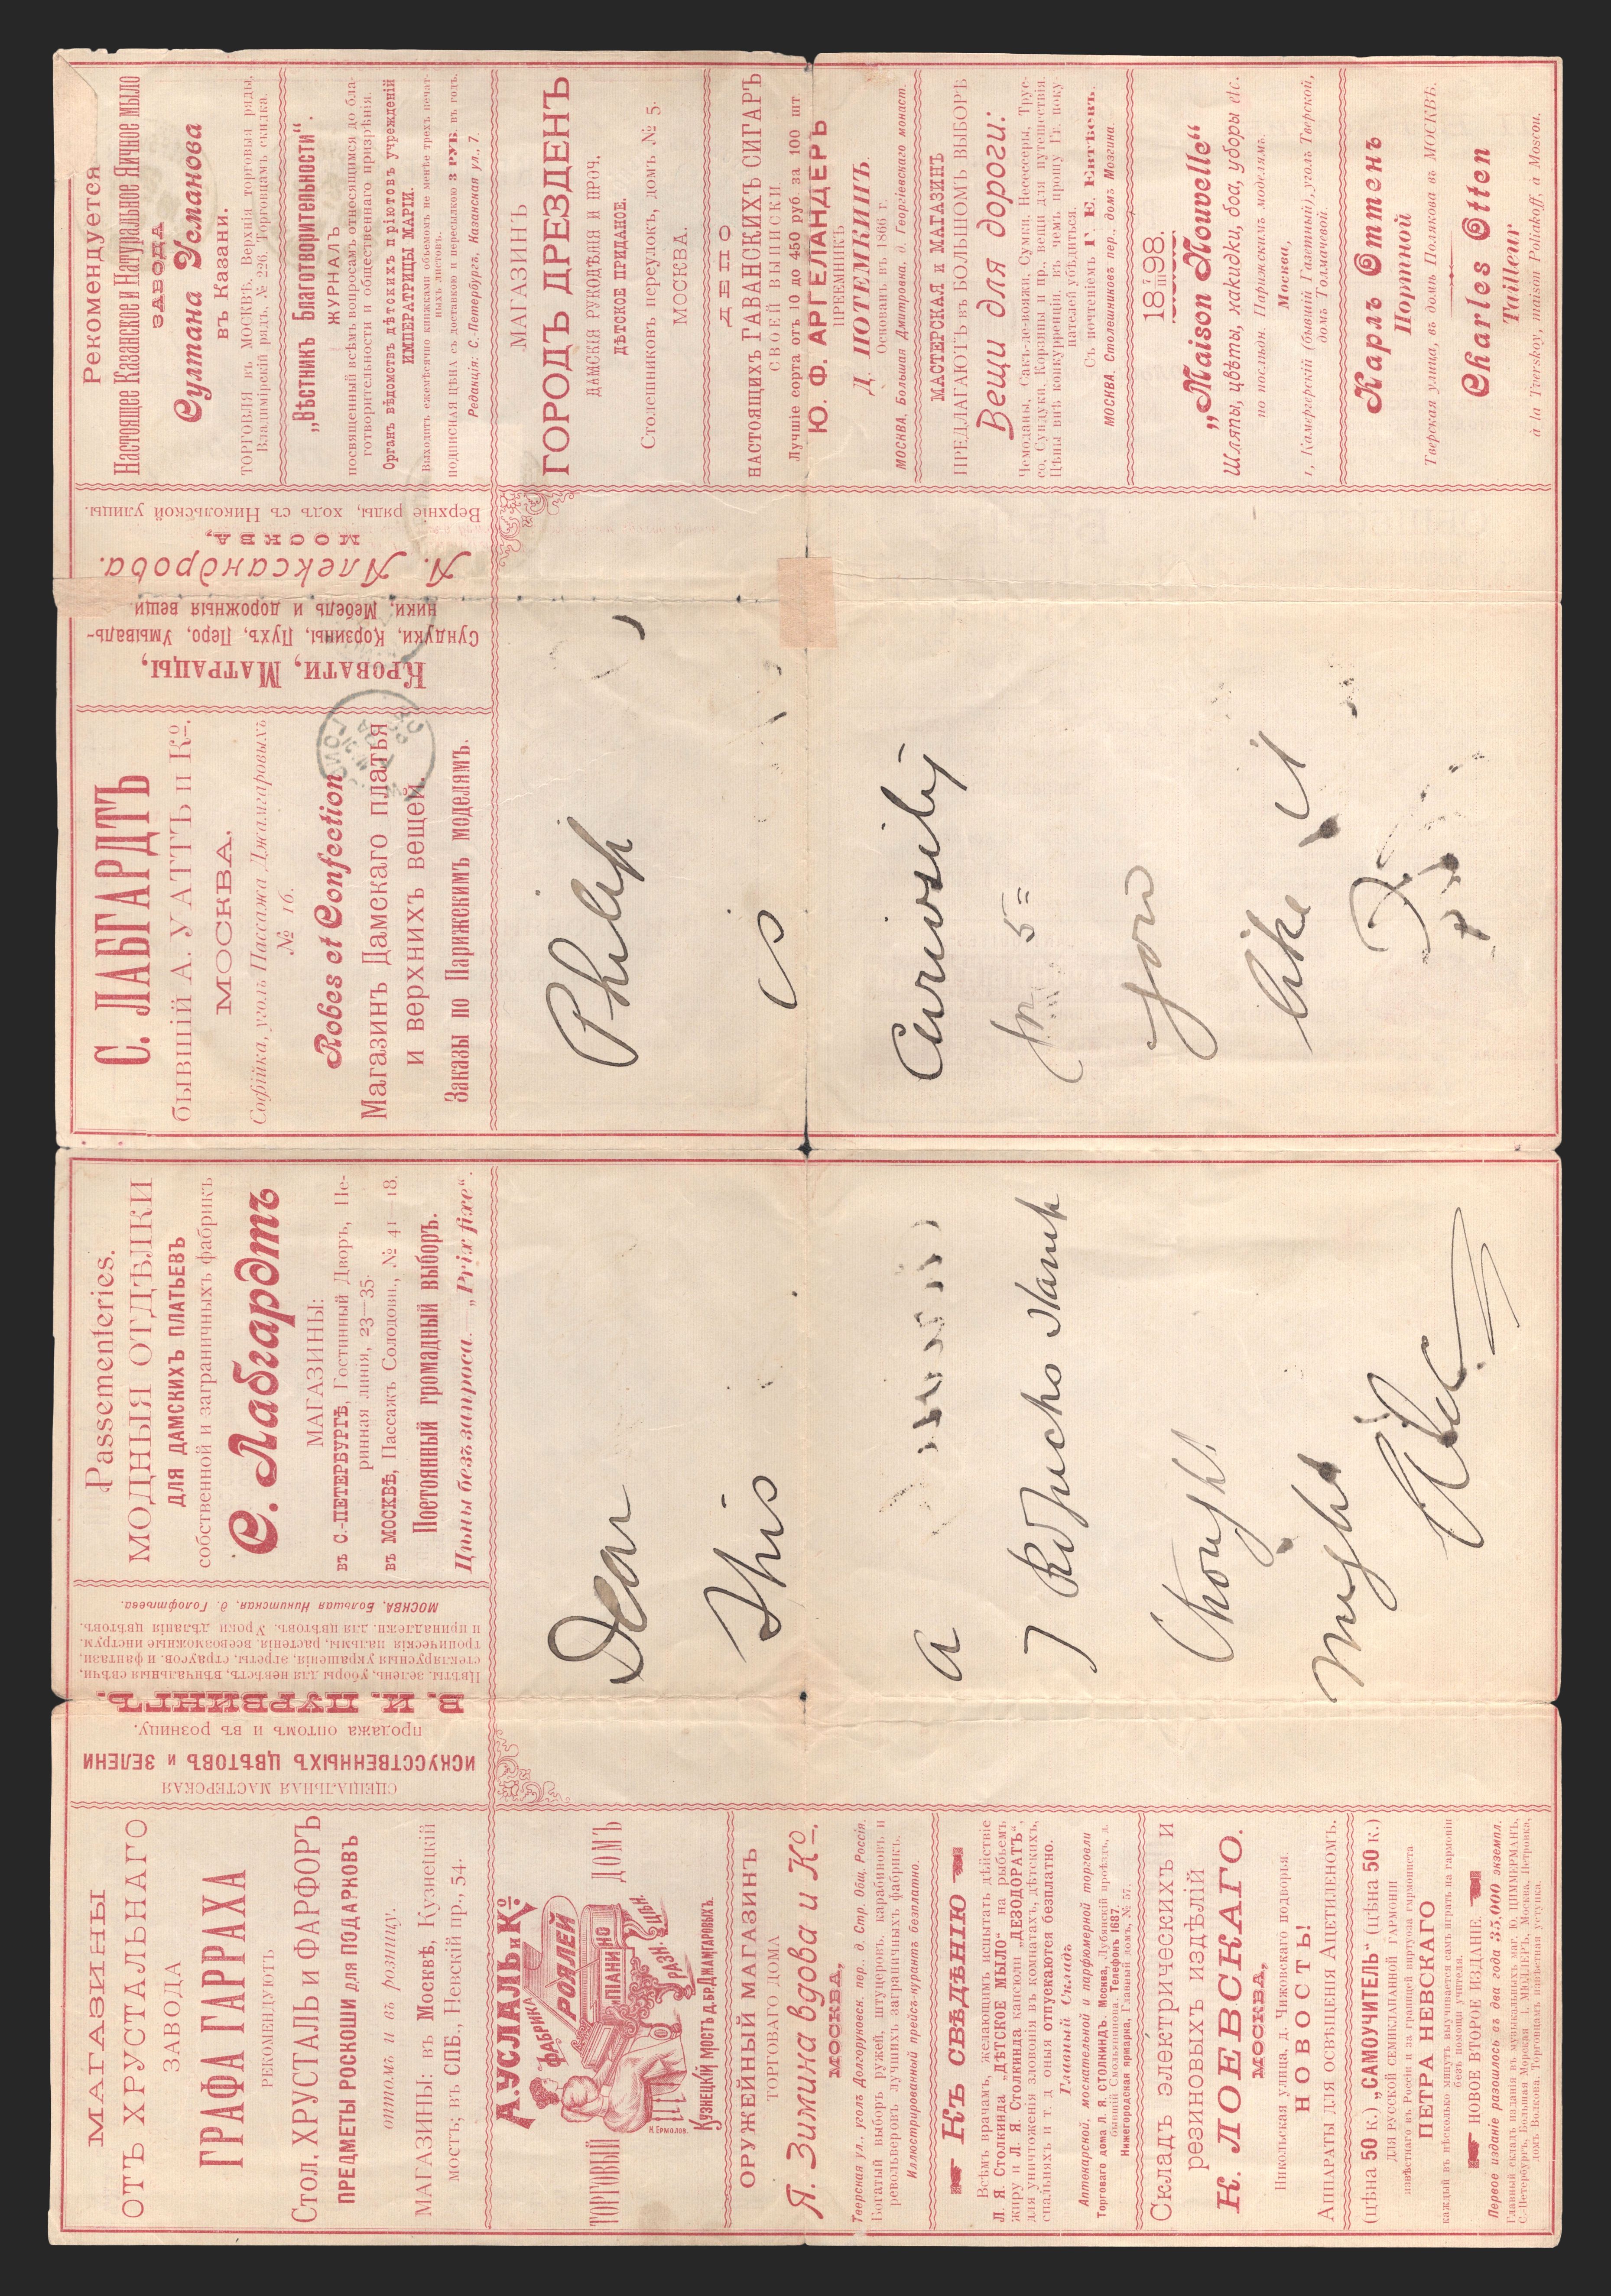 МАГАЗИНЫ
ОТЪ ХРУСТАЛЬНАГО
ЗАВОДА
ГРАФА ГАРРАХА
РЕКОМЕНДУЮТЪ
СТОЛ. ХРУСТАЛЬ И ФАРФОРЪ
ПРЕДМЕТЫ РОСКОШИ для ПОДАРКОВЪ
оптомъ и въ розницу.
МАГАЗИНЫ: въ Москвѣ, Кузнецкій
мостъ; въ СПБ., Невскій пр., 54.
СПЕЦІАЛЬНАЯ МАСТЕРСКАЯ
ИСКУССТВЕННЫХЪ ЦВѢТОВЪ и ЗЕЛЕНИ
продажа оптомъ и въ розницу.
В. И. ПУРВИНГЪ.
Цвѣты, зелень, уборы для невѣстъ, вѣнчальныя свѣчи,
стеклярусныя украшенія, эгреты, страусов. и фантази,
тропическія пальмы, растенія, всевозможные инструм.
и принадлежн. для цвѣтовъ. Уроки дѣланія цвѣтовъ.
МОСКВА, Большая Никитская, д. Голофтѣева.
Passementeries.
МОДНЫЯ ОТДѢЛКИ
ДЛЯ ДАМСКИХЪ ПЛАТЬЕВЪ
собственной и заграничныхъ фабрикъ
С. Лабгардтъ
МАГАЗИНЫ:
въ С.-ПЕТЕРБУРГѢ, Гостинный Дворъ, Пе-
ринная линія, 23—35.
въ МОСКВѢ, Пассажъ Солодовн., № 41—18.
Постоянный громадный выборъ.
Цѣны безъ запроса.—„Prix fixe“.
С. ЛАБГАРДТЪ
БЫВШІЙ А. УАТТЪ и Кº.
МОСКВА,
Софійка, уголъ Пассажа Джамгаровыхъ
№ 16.
Robes et Confection
Магазинъ Дамскаго платья
и верхнихъ вещей.
Заказы по Парижскимъ моделямъ.
КРОВАТИ, МАТРАЦЫ,
Сундуки, Корзины, Пухъ, Перо, Умываль-
ники, Мебель и дорожныя вещи
А. Александрова.
МОСКВА,
Верхніе ряды, ходъ съ Никольской улицы.
Рекомендуется
Настоящее Казанское и Натуральное Яичное мыло
ЗАВОДА
Султана Усманова
въ Казани.
ТОРГОВЛЯ въ МОСКВѢ, Верхнія торговыя ряды,
Владимірскій рядъ, № 226. Торговцамъ скидка.
„Вѣстникъ Благотворительности“.
ЖУРНАЛЪ
посвященный всѣмъ вопросамъ, относящимся до бла-
готворительности и общественнаго призрѣнія.
Органъ вѣдомствъ дѣтскихъ пріютовъ учрежденій
ИМПЕРАТРИЦЫ МАРІИ.
Выходитъ ежемѣсячно книжками объемомъ не менѣе трехъ печат-
ныхъ листовъ.
ПОДПИСНАЯ ЦѢНА съ доставкою и пересылкою 3 РУБ. въ годъ.
Редакція: С.-Петербургъ, Казанская ул., 7.
А. УСЛАЛЬ и Кº
ФАБРИКА
РОЯЛЕЙ
ПІАНИНО
РАЗН. ЦѢН.
Н. Ермолов.
ТОРГОВЫЙ ДОМЪ
КУЗНЕЦКІЙ МОСТЪ Д. БР. ДЖАМГАРОВЫХЪ.
ОРУЖЕЙНЫЙ МАГАЗИНЪ
ТОРГОВАГО ДОМА
Я. Зимина вдова и Кº.
МОСКВА,
Тверская ул., уголъ Долгоруковск. пер. д. Стр. Общ. Россія.
Богатый выборъ ружей, штуцеровъ, карабиновъ и
револьверовъ лучшихъ заграничныхъ фабрикъ.
Иллюстрированный прейсъ-курантъ безплатно.
Къ СВѢДѢНІЮ
Всѣмъ врачамъ, желающимъ испытать дѣйствіе
Л. Я. Столкинда „ДѢТСКОЕ МЫЛО“ на рыбьемъ
жиру и Л. Я. Столкинда капсюли „ДЕЗОДОРАТЪ“,
для уничтоженія зловонія въ комнатахъ, дѣтскихъ,
спальняхъ и т. д. оныя отпускаются безплатно.
Главный Складъ
Аптекарской, москательной и парфюмерной торговли
Торговаго дома Л. Я. СТОЛКИНДЪ. Москва, Лубянскій проѣздъ, д.
бывшій Смольянинова. Телефонъ 1687.
Нижегородская ярмарка, Главный домъ, № 37.
Складъ электрическихъ и
резиновыхъ издѣлій
К. ЛОЕВСКАГО.
МОСКВА,
Никольская улица, д. Чижовскаго подворья.
НОВОСТЬ!
АППАРАТЫ ДЛЯ ОСВѢЩЕНІЯ АЦЕТИЛЕНОМЪ.
(цѣна 50 к.) „САМОУЧИТЕЛЬ“ (цѣна 50 к.)
ДЛЯ РУССКОЙ СЕМИКЛАПАННОЙ ГАРМОНІИ
извѣстнаго въ Россіи и за границей виртуоза гармониста
ПЕТРА НЕВСКАГО
каждый въ нѣсколько минутъ выучивается самъ играть на гармоніи
безъ помощи учителя.
НОВОЕ ВТОРОЕ ИЗДАНІЕ.
Первое изданіе разошлось въ два года 35,000 экземпл.
Главный складъ изданія въ музыкальныхъ маг. Ю. ЦИММЕРМАНЪ,
С.-Петербургъ, Большая Морская
домъ Волкова. Торговцамъ извѣстная уступка.
Dear Philip
This is
a Curiosity
I thought you
might like it
МАГАЗИНЪ
ГОРОДЪ ДРЕЗДЕНЪ
ДАМСКІЯ РУКОДѢЛІЯ И ПРОЧ.
ДѢТСКОЕ ПРИДАНОЕ.
Столешниковъ переулокъ, домъ № 5.
МОСКВА.
ДЕПО
НАСТОЯЩИХЪ ГАВАНСКИХЪ СИГАРЪ
СВОЕЙ ВЫПИСКИ.
Лучшіе сорта отъ 10 до 450 руб. за 100 шт.
Ю. Ф. АРГЕЛАНДЕРЪ
ПРЕЕМНИКЪ
Д. ПОТЕМКИНЪ.
Основанъ въ 1866 г.
МОСКВА, Большая Дмитровка, д. Георгіевскаго монаст.
МАСТЕРСКАЯ и МАГАЗИНЪ
ПРЕДЛАГАЮТЪ въ БОЛЬШОМЪ ВЫБОРѢ
Вещи для дороги:
Чемоданы, Сакъ-де-вояжи, Сумки, Несессеры, Трус-
со, Сундуки, Корзины и пр. вещи для путешествія.
Цѣны внѣ конкурренціи, въ чемъ прошу Гг. поку-
пателей убѣдиться.
Съ почтеніемъ Г. Е. Евтѣевъ.
МОСКВА, Столешниковъ пер., домъ Мозгина.
18 7/III 98.
„Maison Nouvelle“
Шляпы, цвѣты, накидки, боа, уборы etc.
по послѣдн. Парижскимъ моделямъ.
Москва,
1, Камергерскій (бывшій Газетный), уголъ Тверской,
домъ Толмачевой.
Карлъ Оттенъ
Портной
Тверская улица, въ домѣ Полякова въ МОСКВѢ.
Charles Otten
Tailleur
à la Tverskoy, maison Poliakoff, à Moscou.